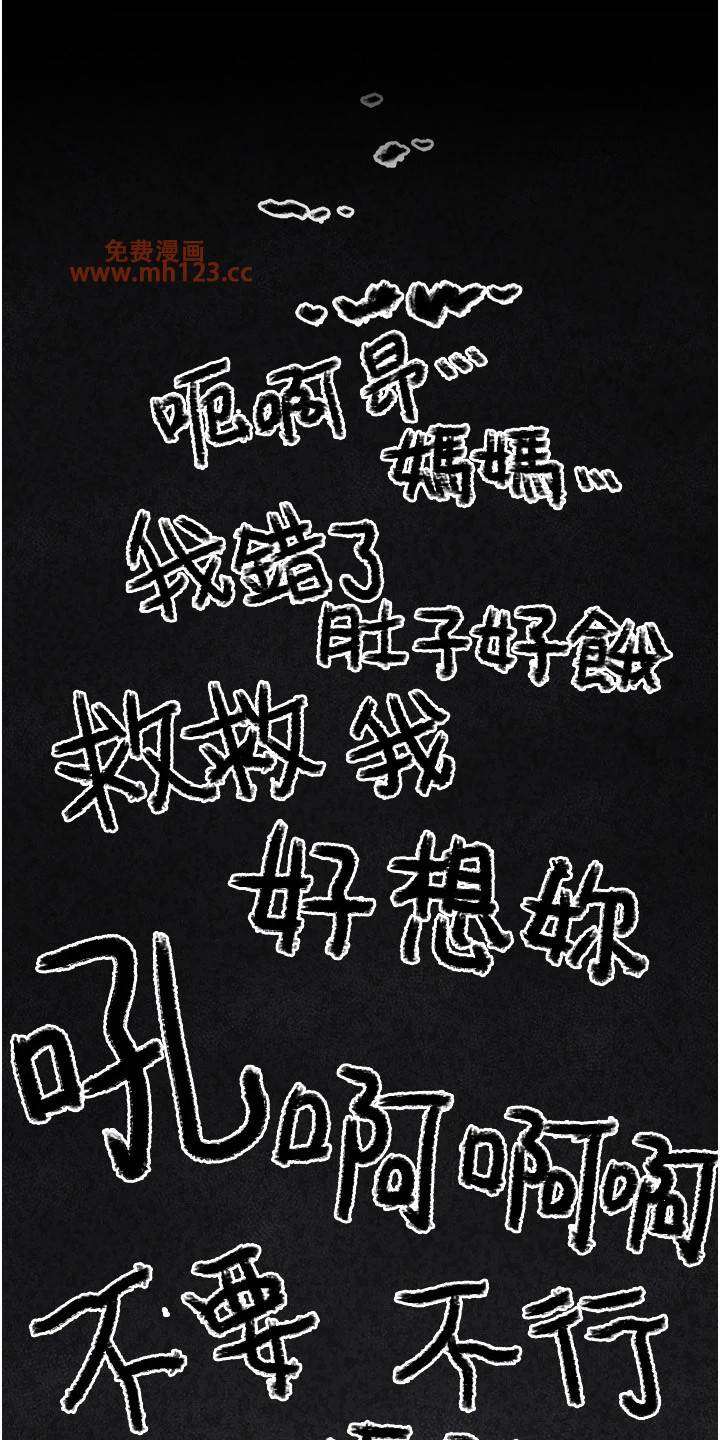 免费漫画
www.mh123.cc
呃啊昂…
媽媽…
我錯了
肚子好餓
救救我
好想妳
吼啊啊啊
不要 不行